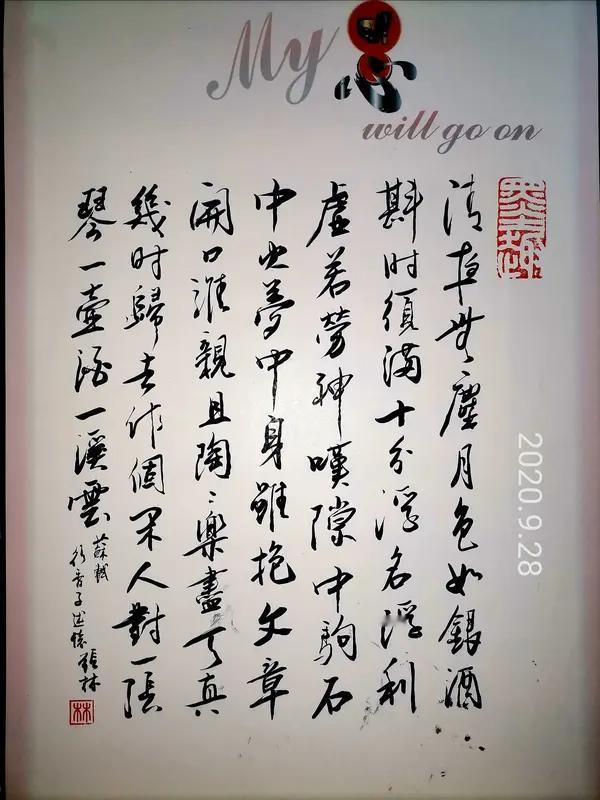 My 思
will go on
清夜無塵月色如銀酒
斟时須滿十分浮名浮利
虛苦勞神嘆隙中駒石
中火夢中身雖抱文章
開口誰親且陶々樂盡天真
幾时歸去作個閑人對一張
琴一壺酒一溪雲
蘇軾
行香子述懷 張林
林
2020.9.28